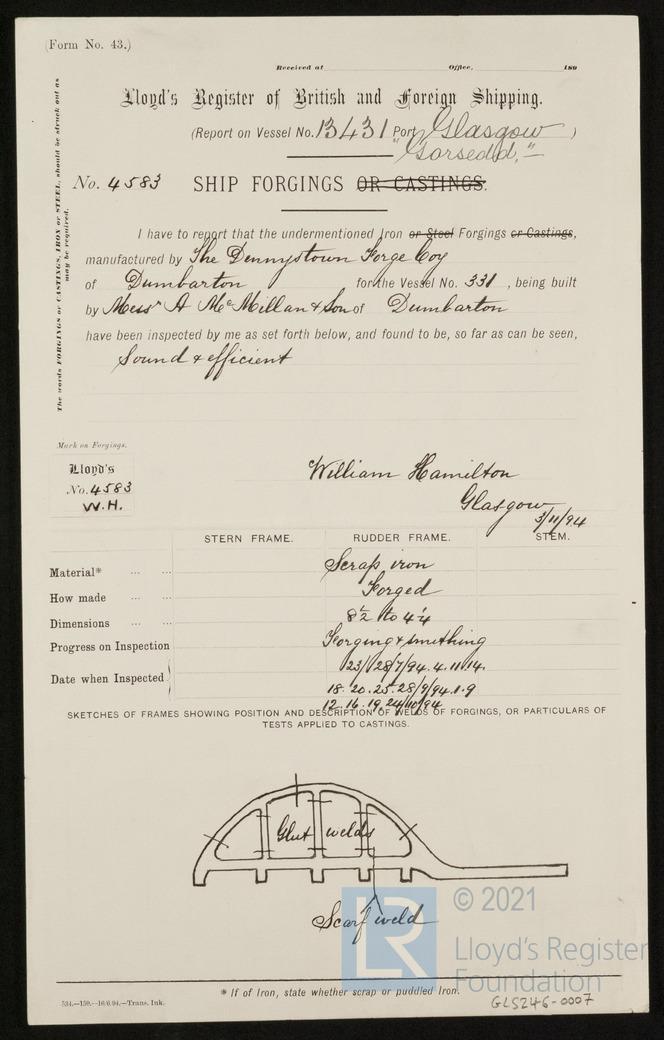 (Form No. 43.)
Received at Office, 189
Lloyd's Register of British and Foreign Shipping.
(Report on Vessel No. 13431 Port Glasgow )
"Gorsedd,"
No. 4583 SHIP FORGINGS OR CASTINGS.
The words FORGINGS or CASTINGS, IRON or STEEL, should be struck out as
may be required.
I have to report that the undermentioned Iron or Steel Forgings or Castings,
manufactured by The Dennystown Forge Coy
of Dumbarton for the Vessel No. 331 , being built
by Messrs A McMillan & Son of Dumbarton
have been inspected by me as set forth below, and found to be, so far as can be seen,
Sound & efficient
Mark on Forgings.
Lloyd's
No. 4583
W.H.
William Hamilton
Glasgow
3/11/94
STERN FRAME. RUDDER FRAME. STEM.
Material* ... ... Scrap iron
How made ... ... Forged
Dimensions ... ... 8½ to 4¼
Progress on Inspection Forging & smithing
Date when Inspected 23/ 28/7/94. 4. 11. 14.
18. 20. 25. 28/9/94. 1. 9
12. 16. 19. 24/10/94
SKETCHES OF FRAMES SHOWING POSITION AND DESCRIPTION OF WELDS OF FORGINGS, OR PARTICULARS OF
TESTS APPLIED TO CASTINGS.
Glut welds
Scarf weld
LR © 2021
Lloyd's Register
Foundation
* If of Iron, state whether scrap or puddled Iron.
534.—150.—16/6.94.—Trans. Ink.
GLS246-0007